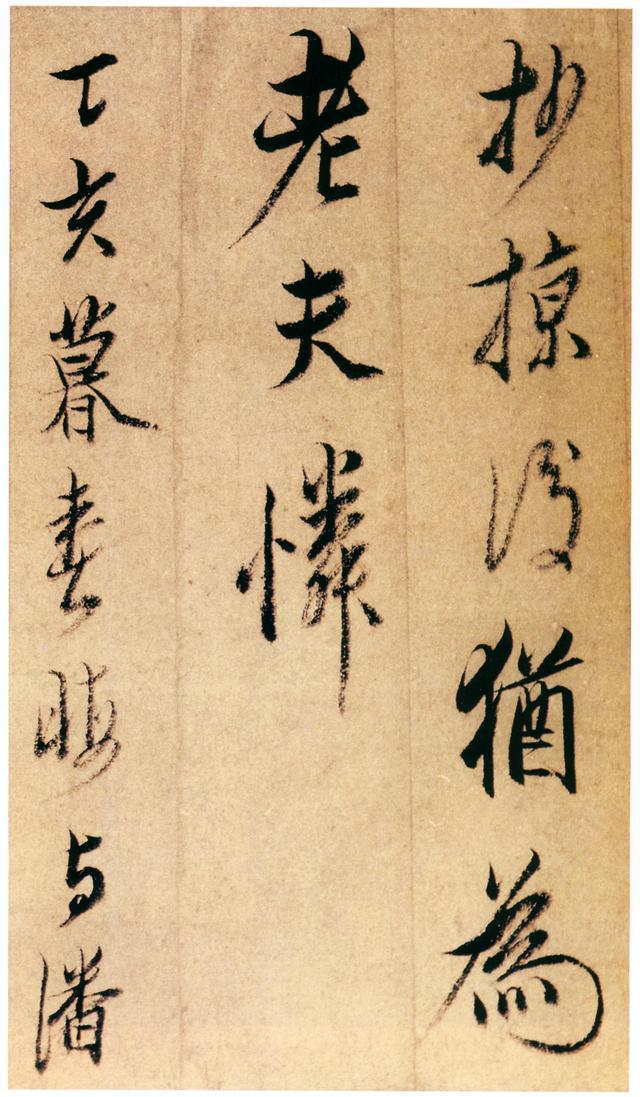 抄掠後猶為
老夫憐
丁亥暮春晦与潘